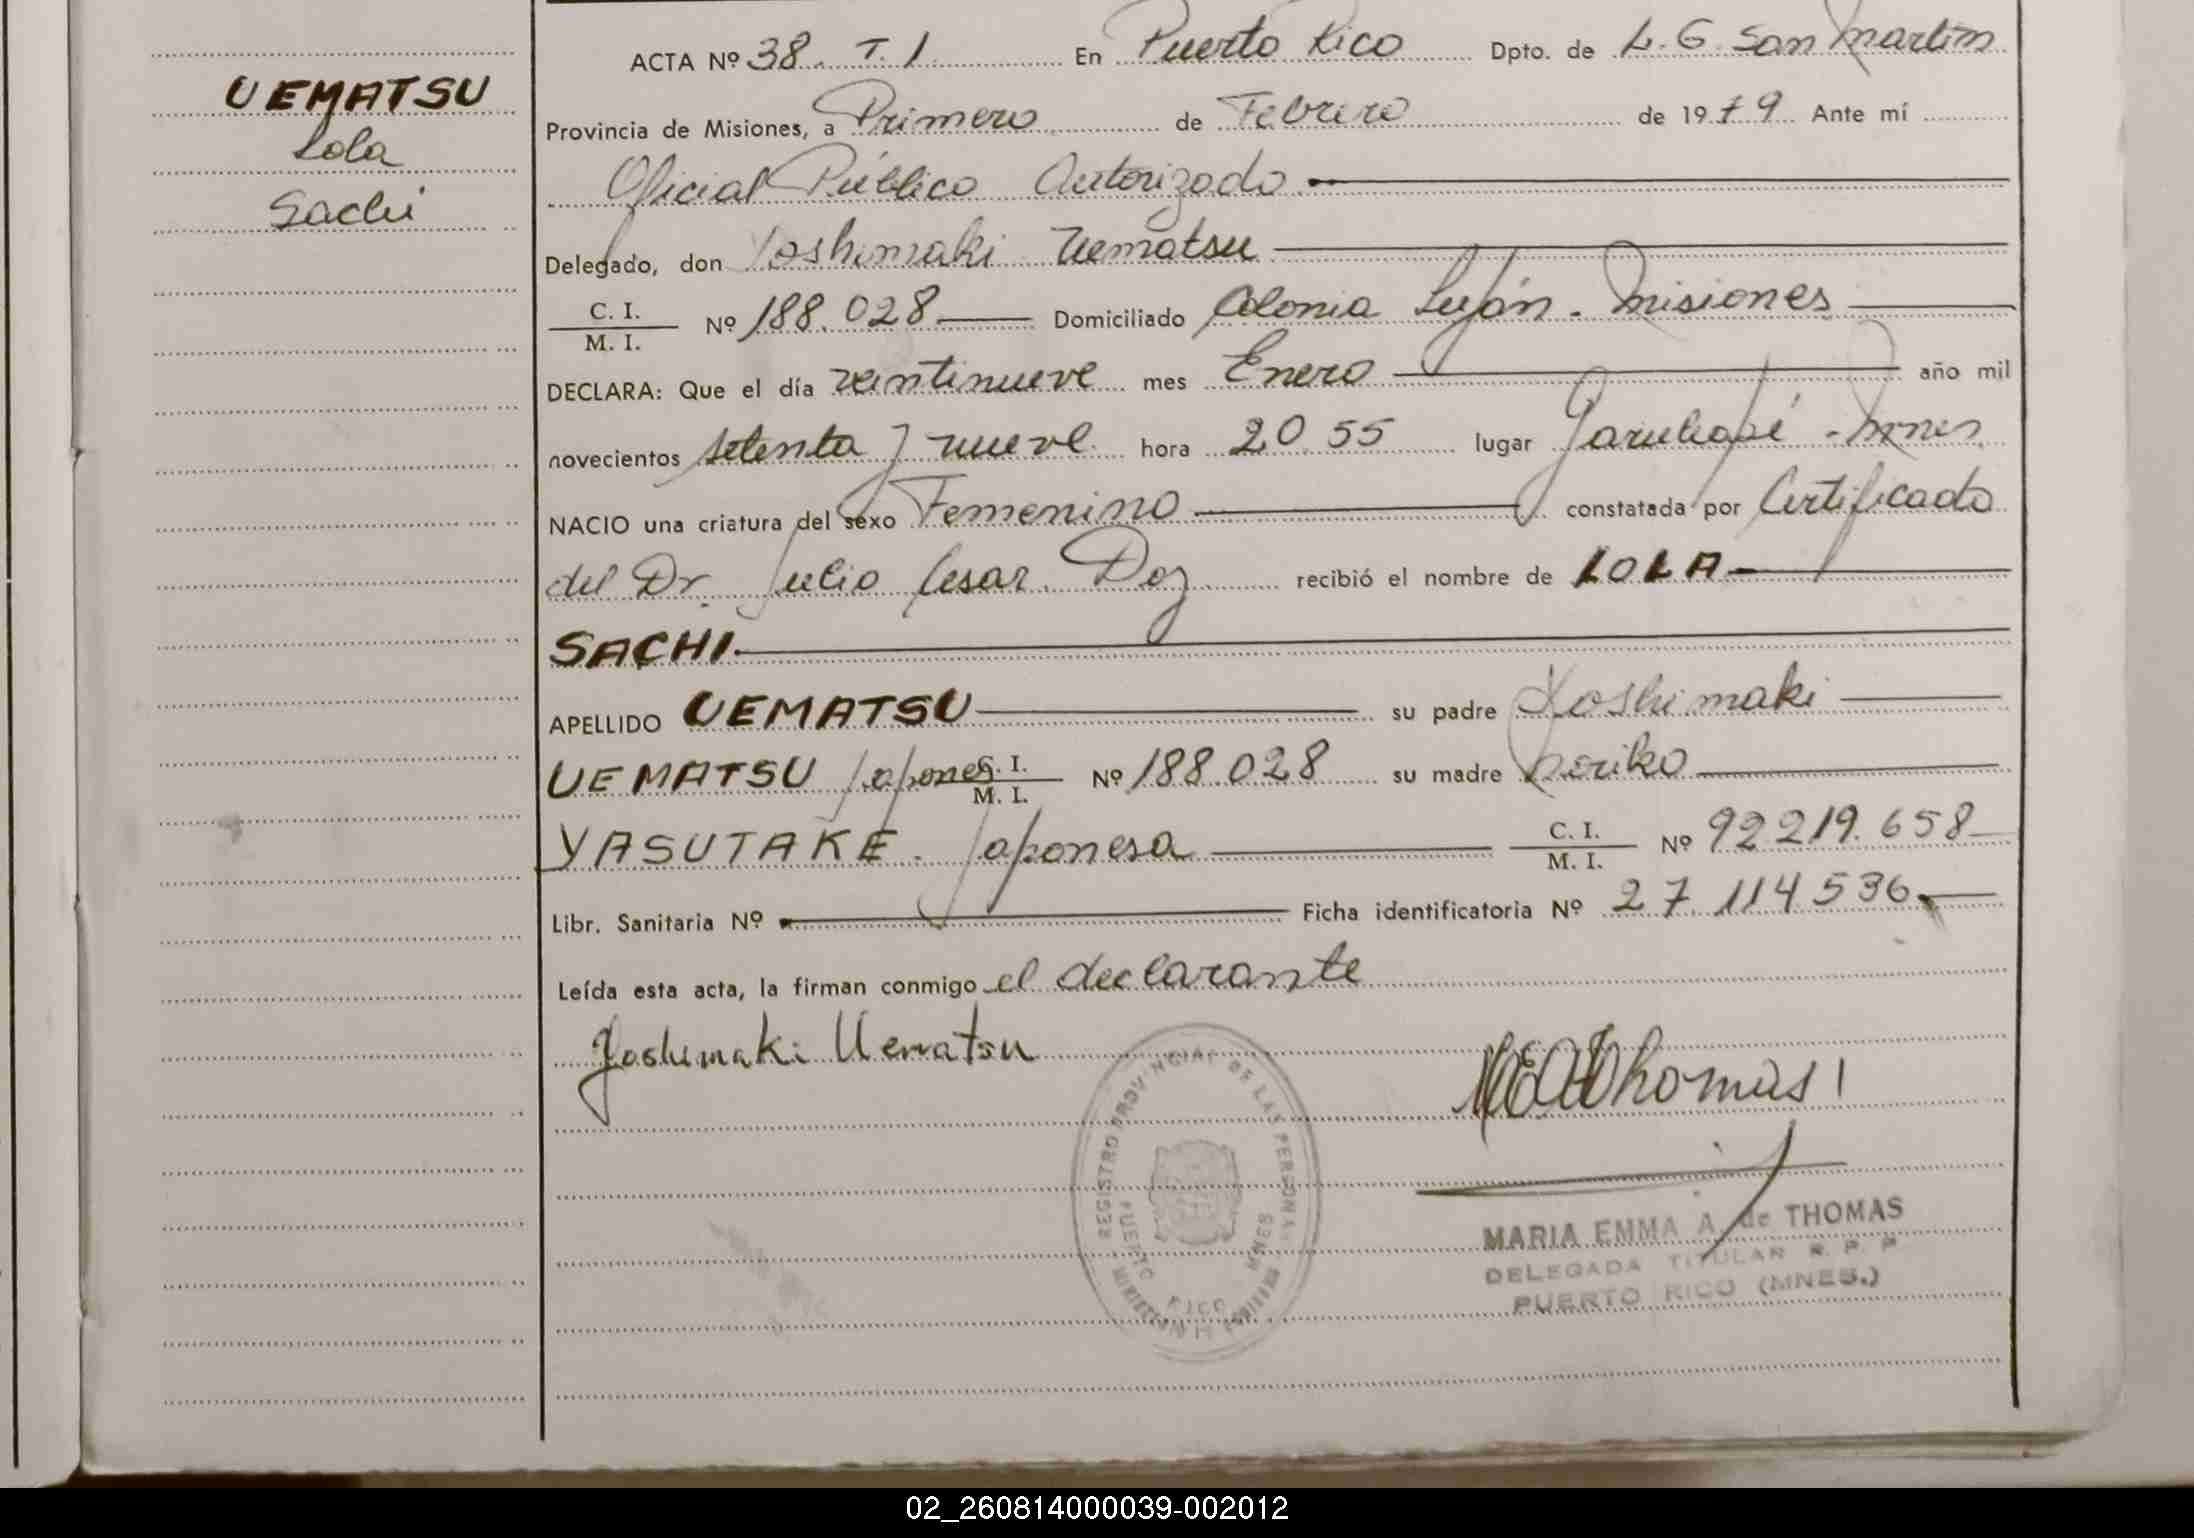 UEMATSU
Lola
Sachi
ACTA Nº 38. T. 1 En Puerto Rico Dpto. de L. G. San Martin
Provincia de Misiones, a Primero de Febrero de 1979 Ante mí
Oficial Público Autorizado
Delegado, don Yoshimaki Uematsu
C. I.
M. I. Nº 188.028 Domiciliado Colonia Luján - Misiones
DECLARA: Que el día veintinueve mes Enero año mil
novecientos setenta y nueve hora 20.55 lugar Garuhapé - Mnes
NACIO una criatura del sexo Femenino constatada por Certificado
del Dr. Julio Cesar Doz recibió el nombre de LOLA
SACHI
APELLIDO UEMATSU su padre Yoshimaki
UEMATSU japones C. I. M. I. Nº 188.028 su madre Noriko
YASUTAKE. japonesa C. I. M. I. Nº 92.219.658
Libr. Sanitaria Nº Ficha identificatoria Nº 27.114.536
Leída esta acta, la firman conmigo el declarante
Yoshimaki Uematsu
Thomas
REGISTRO PROVINCIAL DE LAS PERSONAS
PUERTO RICO MNES
MARIA EMMA A. de THOMAS
DELEGADA TITULAR R. P. P.
PUERTO RICO (MNES.)
02_260814000039-002012